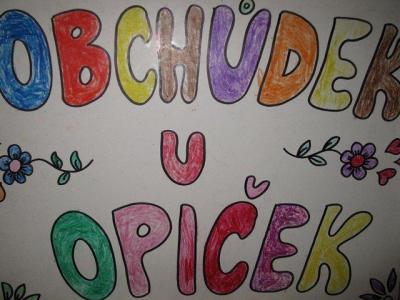 OBCHŮDEK
U
OPIČEK